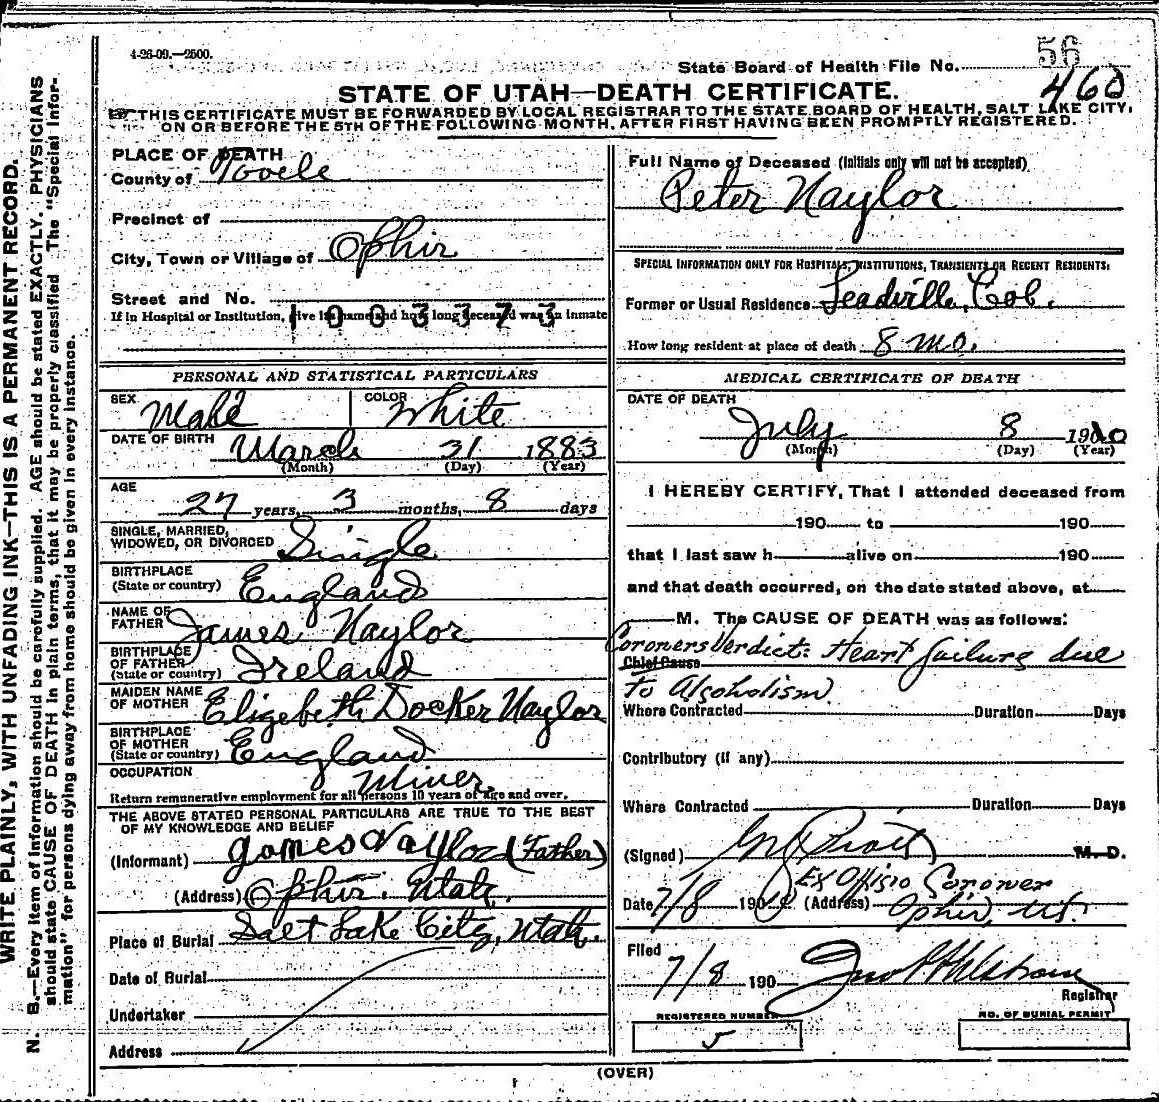 4-26-09.—2500.
56
State Board of Health File No.
460
STATE OF UTAH—DEATH CERTIFICATE.
THIS CERTIFICATE MUST BE FORWARDED BY LOCAL REGISTRAR TO THE STATE BOARD OF HEALTH, SALT LAKE CITY,
ON OR BEFORE THE 5TH OF THE FOLLOWING MONTH, AFTER FIRST HAVING BEEN PROMPTLY REGISTERED.
WRITE PLAINLY, WITH UNFADING INK—THIS IS A PERMANENT RECORD.
N. B.—Every item of information should be carefully supplied. AGE should be stated EXACTLY. PHYSICIANS
should state CAUSE OF DEATH in plain terms, that it may be properly classified. The "Special Infor-
mation" for persons dying away from home should be given in every instance.
PLACE OF DEATH
County of Tooele
Precinct of
City, Town or Village of Ophir
Street and No.
If in Hospital or Institution, give its name and how long deceased was an inmate
1003373
PERSONAL AND STATISTICAL PARTICULARS
SEX Male COLOR White
DATE OF BIRTH March 31 1883
(Month) (Day) (Year)
AGE
27 years, 3 months, 8 days
SINGLE, MARRIED,
WIDOWED, OR DIVORCED Single
BIRTHPLACE
(State or country) England
NAME OF
FATHER James Naylor
BIRTHPLACE
OF FATHER
(State or country) Ireland
MAIDEN NAME
OF MOTHER Elizebeth Docker Naylor
BIRTHPLACE
OF MOTHER
(State or country) England
OCCUPATION Miner.
Return remunerative employment for all persons 10 years of age and over.
THE ABOVE STATED PERSONAL PARTICULARS ARE TRUE TO THE BEST
OF MY KNOWLEDGE AND BELIEF
(Informant) James Naylor (Father)
(Address) Ophir. Utah.
Place of Burial Salt Lake City, Utah.
Date of Burial
Undertaker
Address
Full Name of Deceased (Initials only will not be accepted)
Peter Naylor
SPECIAL INFORMATION ONLY FOR HOSPITALS, INSTITUTIONS, TRANSIENTS OR RECENT RESIDENTS:
Former or Usual Residence Leadville, Col.
How long resident at place of death 8 mo.
MEDICAL CERTIFICATE OF DEATH
DATE OF DEATH
July 8 1910
(Month) (Day) (Year)
I HEREBY CERTIFY, That I attended deceased from
190 to 190
that I last saw h alive on 190
and that death occurred, on the date stated above, at
M. The CAUSE OF DEATH was as follows:
Coroners Verdict: Heart failure due
Chief Cause
to Alcoholism
Where Contracted Duration Days
Contributory (if any)
Where Contracted Duration Days
(Signed) M. D.
Ex Offisio Coroner
Date 7/8 190 (Address) Ophir, Ut.
Filed
7/8 190
Registrar
REGISTERED NUMBER
5
NO. OF BURIAL PERMIT
(OVER)